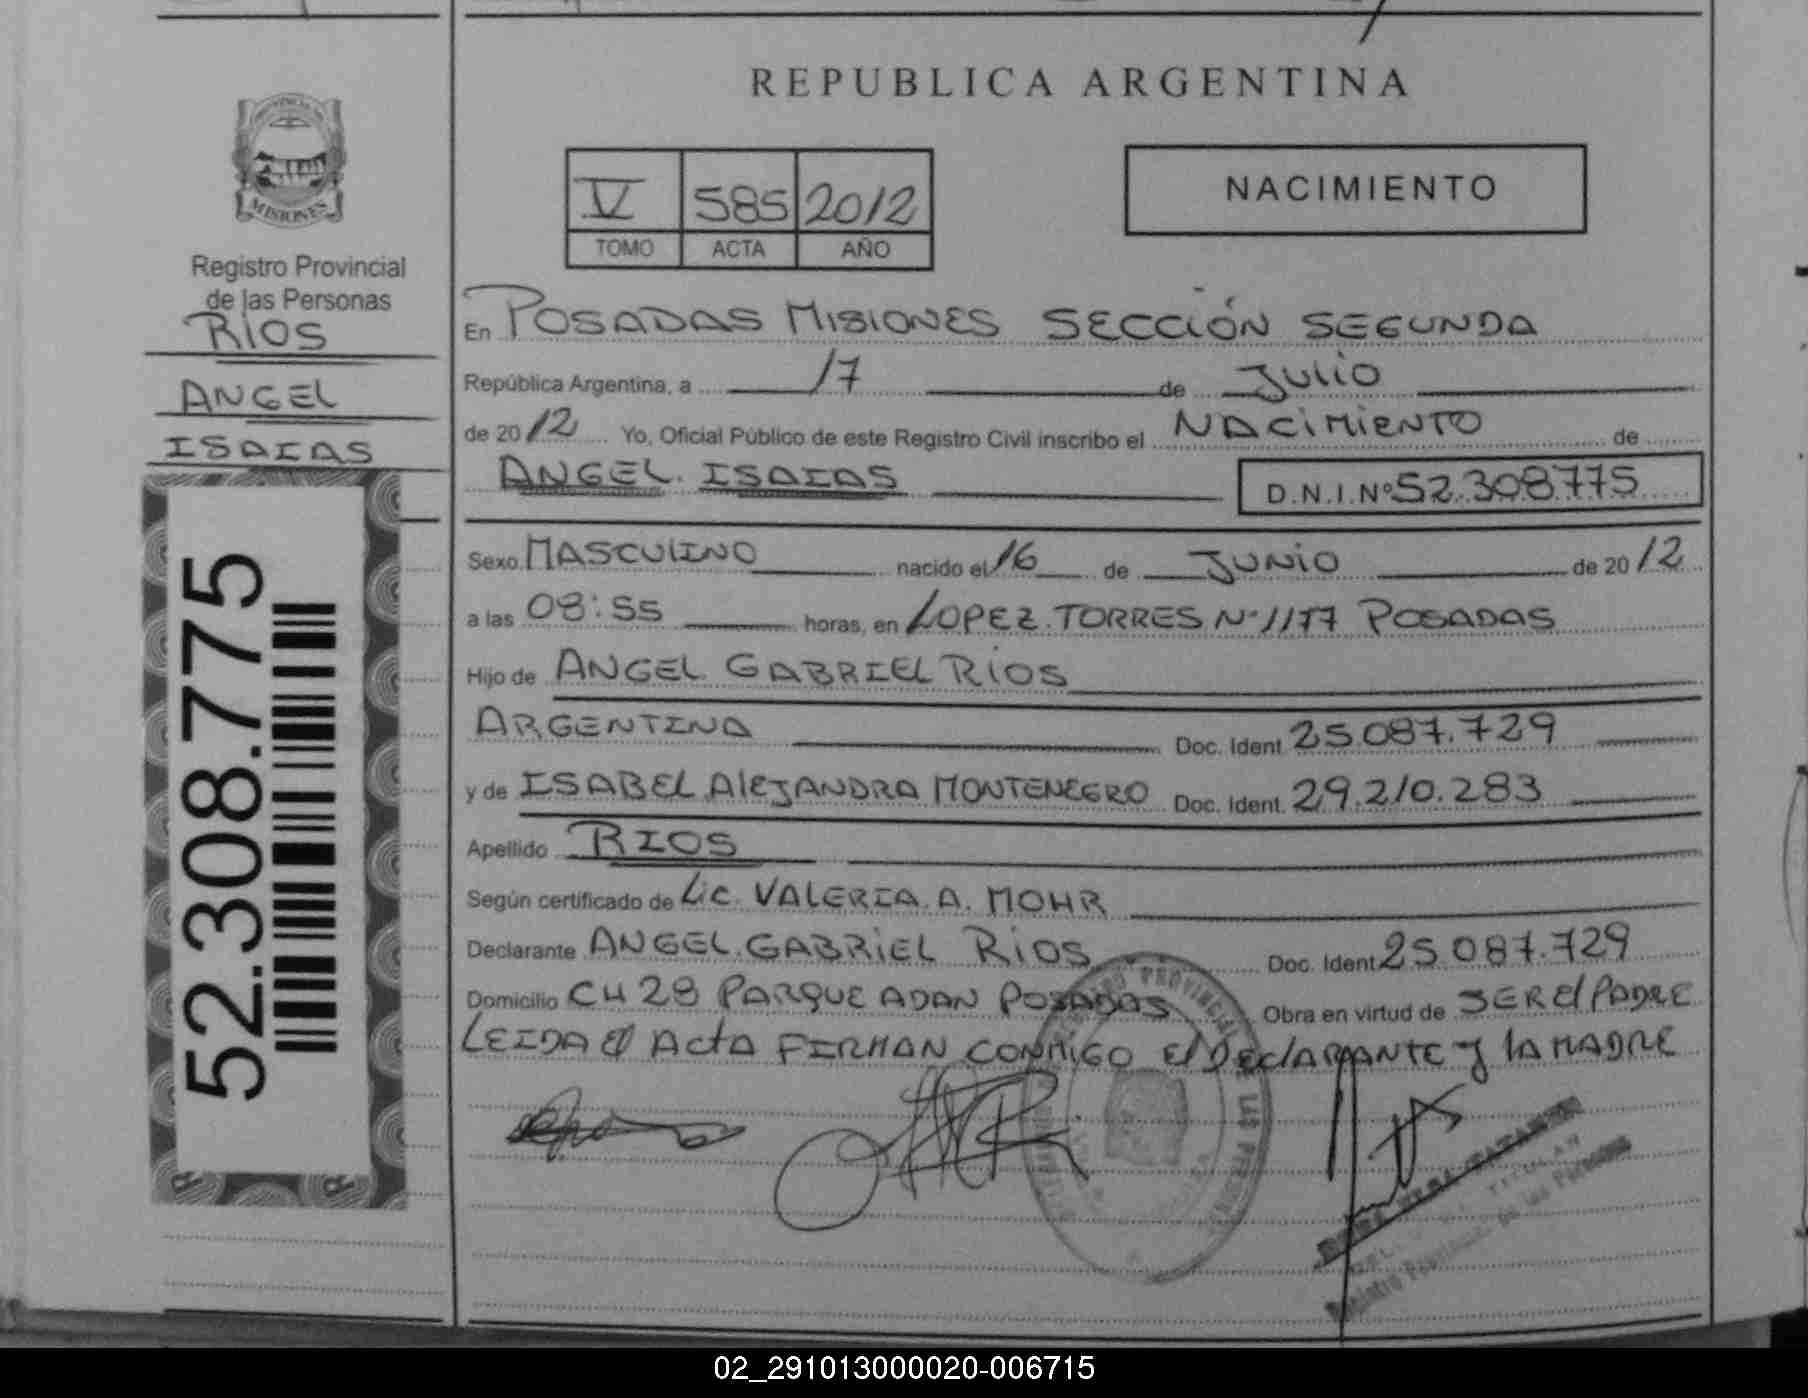 REPUBLICA ARGENTINA
PROVINCIA DE
MISIONES
Registro Provincial
de las Personas
RÍOS
ANGEL
ISAIAS
52.308.775
V 585 2012
TOMO ACTA AÑO
NACIMIENTO
En POSADAS MISIONES SECCIÓN SEGUNDA
República Argentina, a 17 de Julio
de 2012 Yo, Oficial Público de este Registro Civil inscribo el NACIMIENTO de
ANGEL ISAIAS D.N.I.Nº 52.308775
Sexo MASCULINO nacido el 16 de JUNIO de 2012
a las 08:55 horas, en LOPEZ TORRES Nº 1177 POSADAS
Hijo de ANGEL GABRIEL RÍOS
ARGENTINA Doc. Ident 25.087.729
y de ISABEL AlEJANDRA MONTENEGRO Doc. Ident. 29.210.283
Apellido RIOS
Según certificado de Lic. VALERIA. A. MOHR
Declarante ANGEL GABRIEL RíOS Doc. Ident 25.087.729
Domicilio CH 28 PARQUE ADAN POSADAS Obra en virtud de SER El PADRE
LEIDA El ActA FIRMAN CONMIGO El DEClARANTE y lA MADRE
REGISTRO PROVINCIAL DE LAS PERSONAS
TITULAR
Registro Provincial de las Personas
02_291013000020-006715